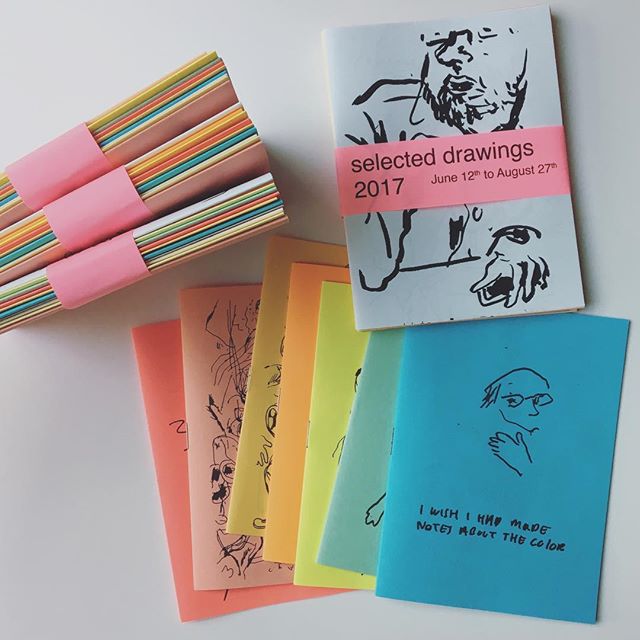 selected drawings
2017 June 12th to August 27th
I WISH I HAD MADE
NOTES ABOUT THE COLOR